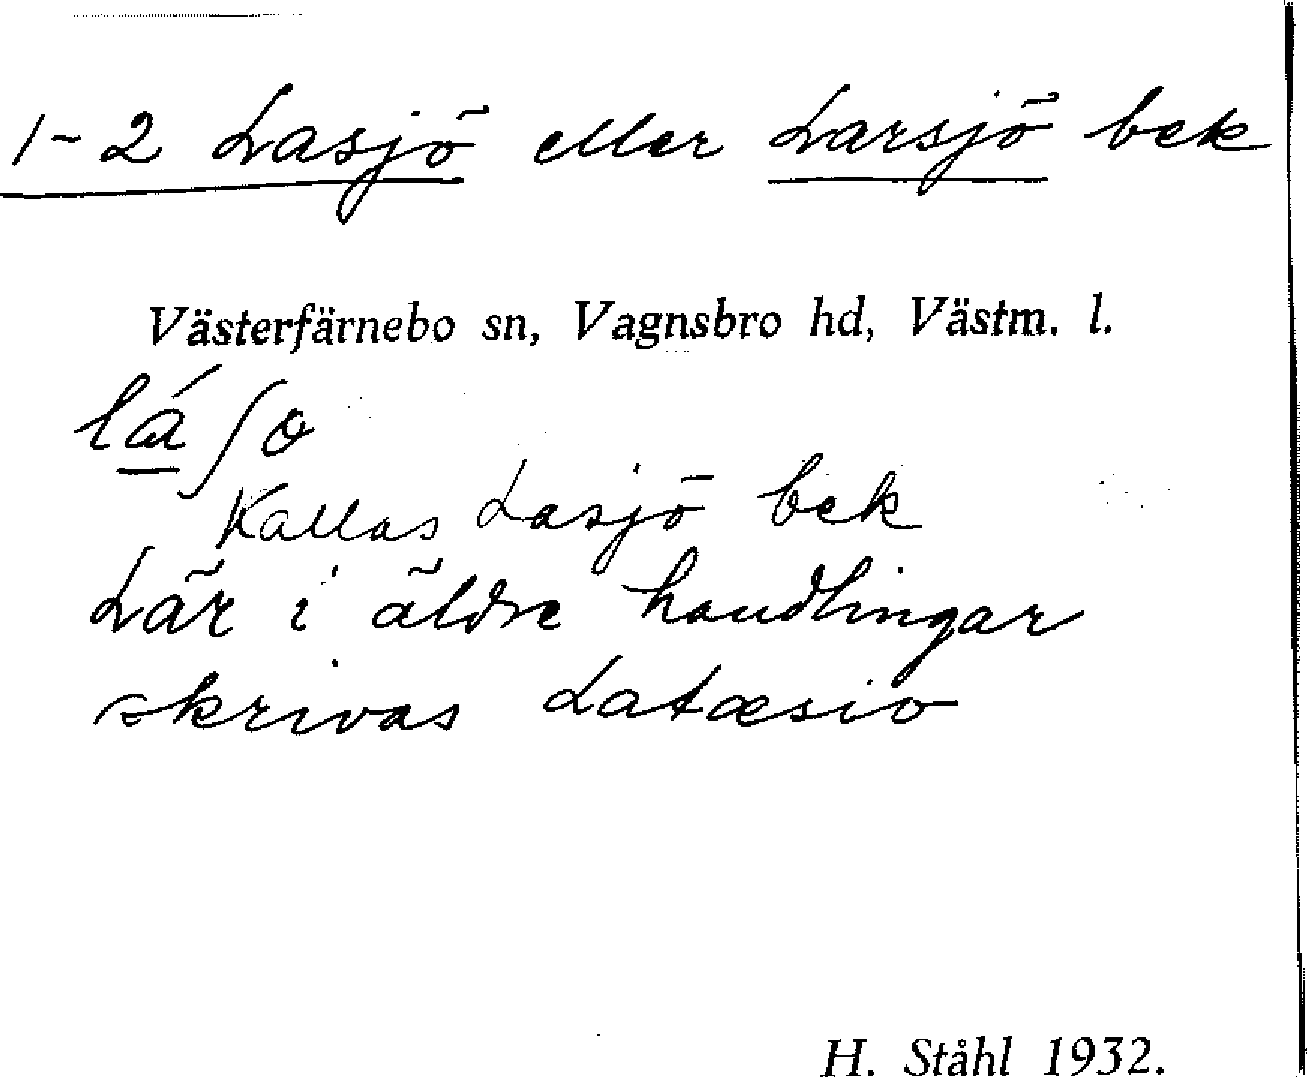 1-2 Lasjö eller Larsjö bek
Västerfärnebo sn, Vagnsbro hd, Västm. l.
láʃo
Kallas Lasjö bek
Lär i äldre handlingar
skrivas Latæsio
H. Ståhl 1932.